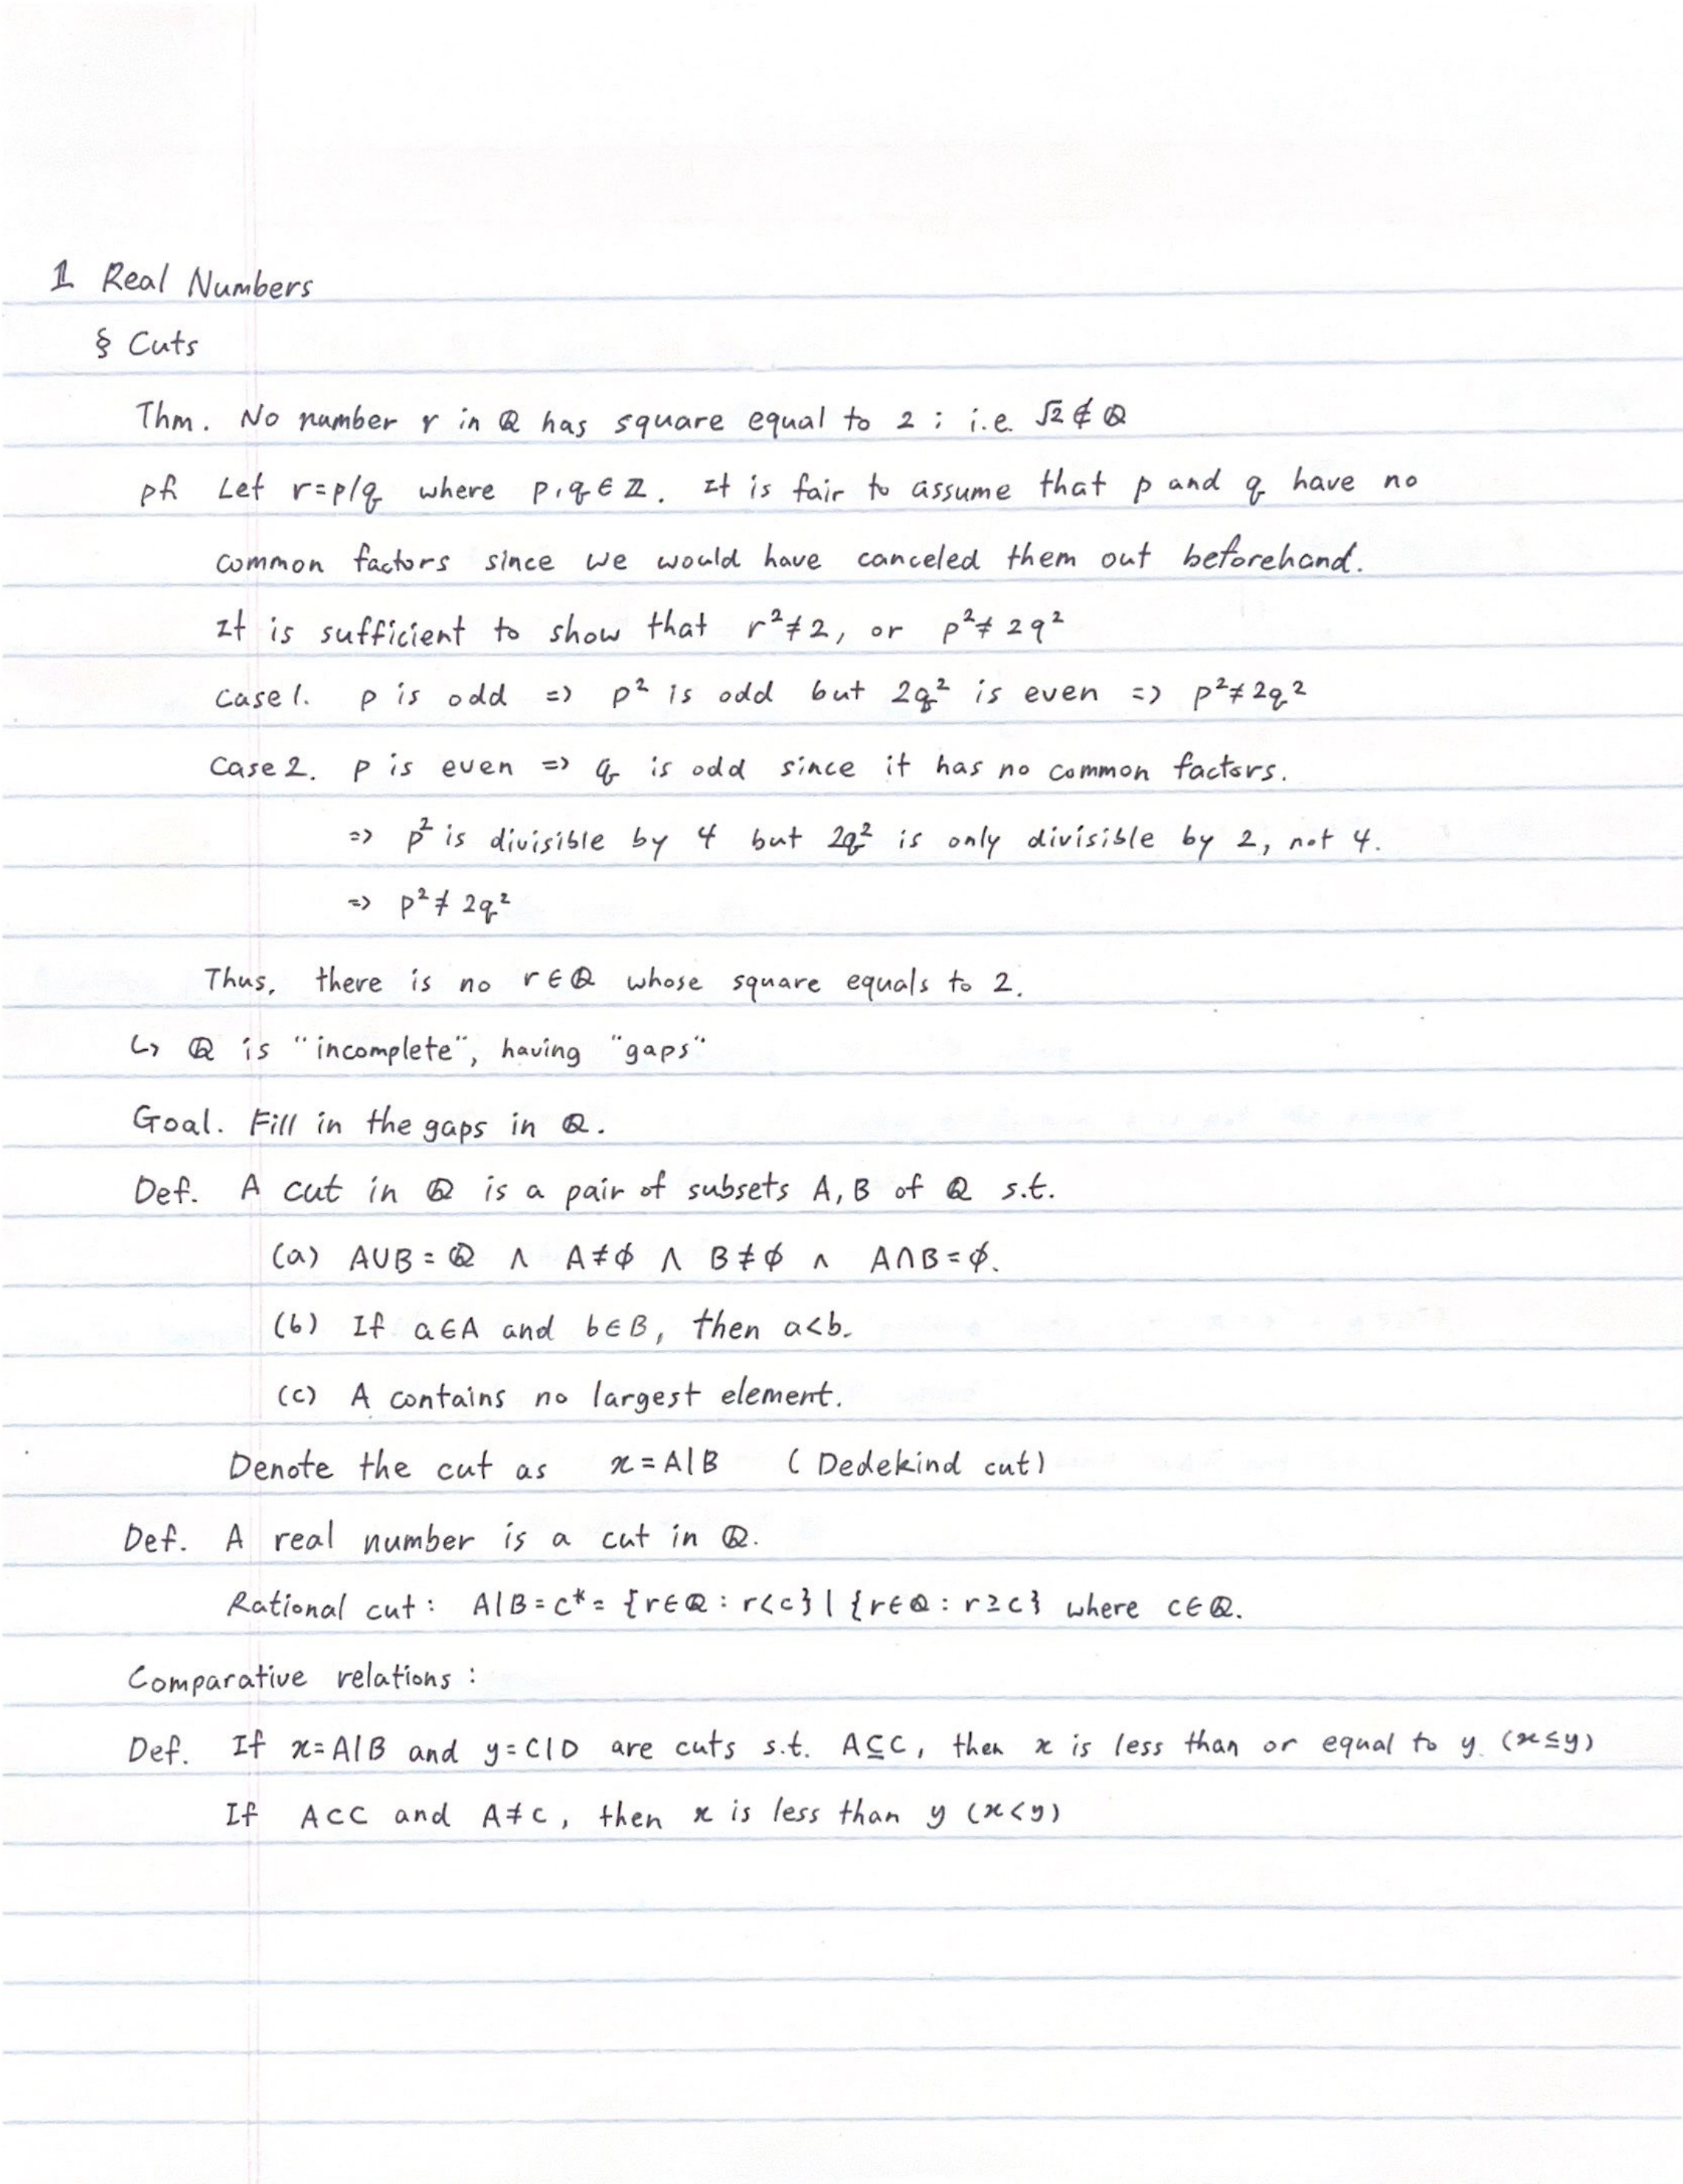 1 Real Numbers
§ Cuts
Thm. No number r in ℚ has square equal to 2 ; i.e. √2 ∉ ℚ
pf. Let r=p/q where p,q ∈ ℤ. It is fair to assume that p and q have no
common factors since we would have canceled them out beforehand.
It is sufficient to show that r²≠2, or p²≠ 2q²
Case 1. p is odd => p² is odd but 2q² is even => p²≠2q²
Case 2. p is even => q is odd since it has no common factors.
=> p² is divisible by 4 but 2q² is only divisible by 2, not 4.
=> p²≠ 2q²
Thus, there is no r∈ℚ whose square equals to 2.
↳ ℚ is "incomplete", having "gaps"
Goal. Fill in the gaps in ℚ.
Def. A cut in ℚ is a pair of subsets A, B of ℚ s.t.
(a) A∪B = ℚ ∧ A≠∅ ∧ B≠∅ ∧ A∩B=∅.
(b) If a∈A and b∈B, then a<b.
(c) A contains no largest element.
Denote the cut as x=A|B (Dedekind cut)
Def. A real number is a cut in ℚ.
Rational cut: A|B=c*= {r∈ℚ : r<c} | {r∈ℚ : r≥c} where c∈ℚ.
Comparative relations :
Def. If x=A|B and y=C|D are cuts s.t. A⊆C, then x is less than or equal to y. (x≤y)
If A⊂C and A≠C, then x is less than y (x<y)